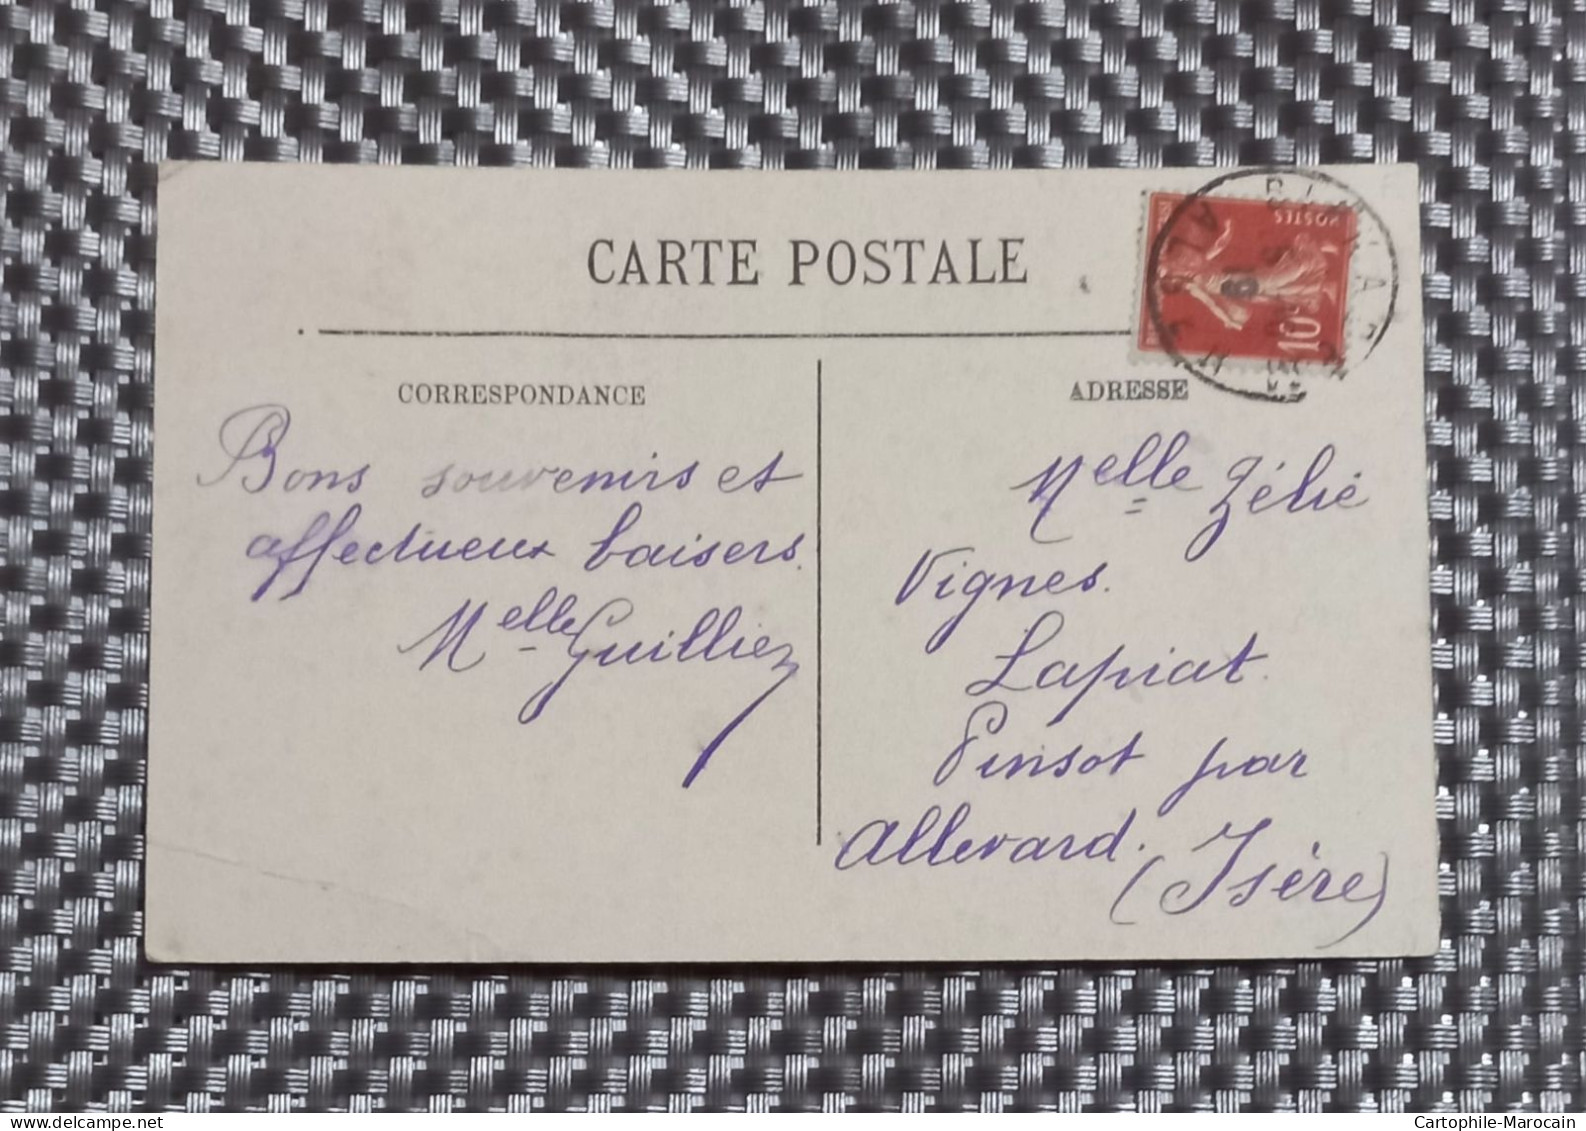 CARTE POSTALE
CORRESPONDANCE
Bons souvenirs et
affectueux baisers.
Melle Guilliez
ADRESSE
Melle Zélie
Vignes.
Lapiat.
Pinsot par
Allevard.
(Isère)
POSTES
10c
ALGER
Cartophile-Marocain